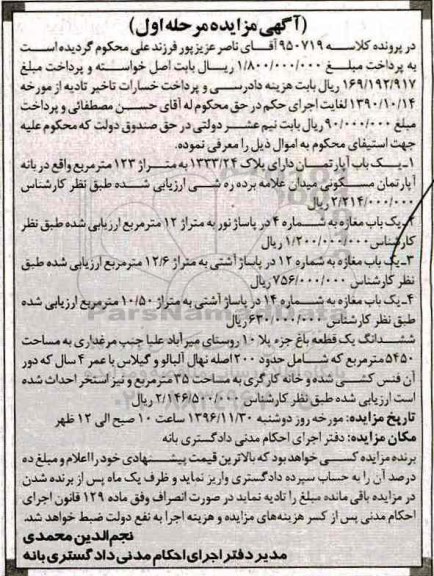 (آگهی مزایده مرحله اول)
در پرونده کلاسه ۹۵۰۷۱۹ آقای ناصر عزیزپور فرزند علی محکوم گردیده است
به پرداخت مبلغ ۱/۸۰۰/۰۰۰/۰۰۰ ریال بابت اصل خواسته و پرداخت مبلغ
۱۶۹/۱۹۲/۹۱۷ ریال بابت هزینه دادرسی و پرداخت خسارات تاخیر تادیه از مورخه
۱۳۹۰/۱۰/۱۴ لغایت اجرای حکم در حق محکوم له آقای حسن مصطفائی و پرداخت
مبلغ ۹۰/۰۰۰/۰۰۰ ریال بابت نیم عشر دولتی در حق صندوق دولت که محکوم علیه
جهت استیفای محکوم به اموال ذیل را معرفی نموده.
۱-یک باب آپارتمان دارای پلاک ۱۳۳۳/۲۴ به متراژ ۱۲۳ مترمربع واقع در بانه
آپارتمان مسکونی میدان علامه برده ره شی ارزیابی شده طبق نظر کارشناس
۲/۲۱۴/۰۰۰/۰۰۰ ریال
۲-یک باب مغازه به شماره ۴ در پاساژ نور به متراژ ۱۲ مترمربع ارزیابی شده طبق نظر
کارشناس ۱/۲۰۰/۰۰۰/۰۰۰ ریال
۳-یک باب مغازه به شماره ۱۲ در پاساژ آشتی به متراژ ۱۲/۶ مترمربع ارزیابی شده طبق
نظر کارشناس ۷۵۶/۰۰۰/۰۰۰ ریال
۴-یک باب مغازه به شماره ۱۴ در پاساژ آشتی به متراژ ۱۰/۵۰ مترمربع ارزیابی شده
طبق نظر کارشناس ۶۳۰/۰۰۰/۰۰۰ ریال
ششدانگ یک قطعه باغ جزء پلا ۱۰ روستای میرآباد علیا جنب مرغداری به مساحت
۵۴۵۰ مترمربع که شامل حدود ۲۰۰ اصله نهال آلبالو و گیلاس با عمر ۴ سال که دور
آن فنس کشی شده و خانه کارگری به مساحت ۳۵ مترمربع و نیز استخر احداث شده
است ارزیابی شده طبق نظر کارشناس ۲/۱۴۶/۵۰۰/۰۰۰ ریال
تاریخ مزایده: مورخه روز دوشنبه ۱۳۹۶/۱۱/۳۰ ساعت ۱۰ صبح الی ۱۲ ظهر
مکان مزایده: دفتر اجرای احکام مدنی دادگستری بانه
برنده مزایده کسی خواهد بود که بالاترین قیمت پیشنهادی خود را اعلام و مبلغ ده
درصد آن را به حساب سپرده دادگستری واریز نماید و ظرف یک ماه پس از برنده شدن
در مزایده باقی مانده مبلغ را تادیه نماید در صورت انصراف وفق ماده ۱۲۹ قانون اجرای
احکام مدنی پس از کسر هزینه‌های مزایده و هزینه اجرا به نفع دولت ضبط خواهد شد.
نجم‌الدین محمدی
مدیر دفتر اجرای احکام مدنی دادگستری بانه